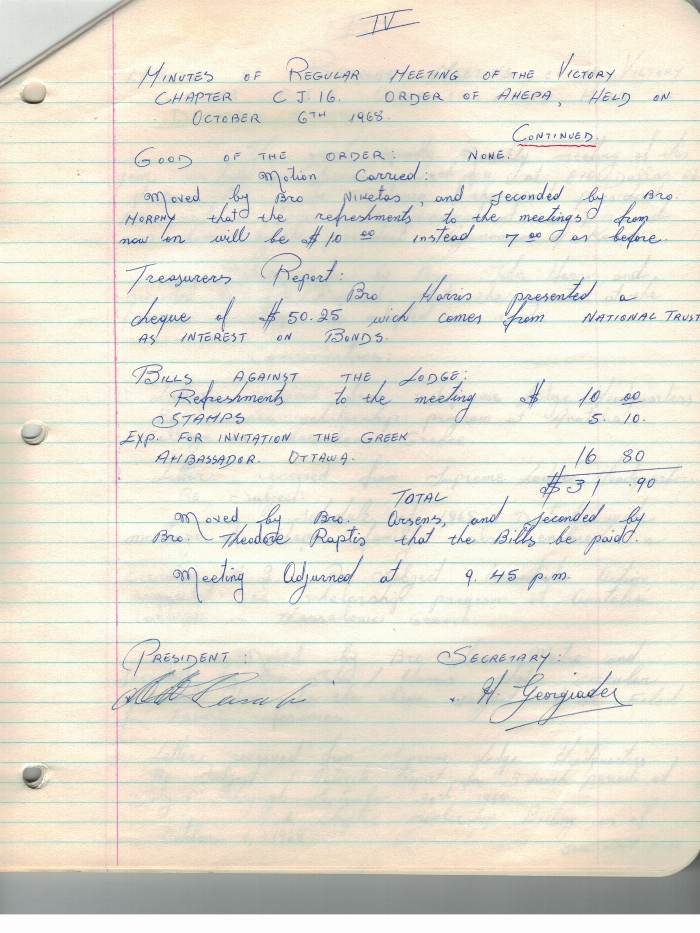 IV
MINUTES OF REGULAR MEETING OF THE VICTORY
CHAPTER C J. 16. ORDER OF AHEPA, HELD ON
OCTOBER 6TH 1968.
CONTINUED.
GOOD OF THE ORDER: NONE.
Motion Carried:
Moved by Bro Niketas, and seconded by Bro.
MORPHY that the refreshments to the meetings from
now on will be $ 10 00 instead 7 00 as before.
Treasurers Report:
Bro Harris presented a
cheque of $ 50.25 wich comes from NATIONAL TRUST
AS INTEREST ON BONDS.
BILLS AGAINST THE LODGE:
Refreshments to the meeting $ 10 00
STAMPS 5. 10.
EXP. FOR INVITATION THE GREEK
AMBASSADOR. OTTAWA. 16 80
TOTAL $ 31 .90
Moved by Bro. Arsens, and seconded by
Bro. Theodore Raptis that the Bills be paid.
Meeting Adjurned at 9. 45 p.m.
PRESIDENT: SECRETARY:
H. Georgiades